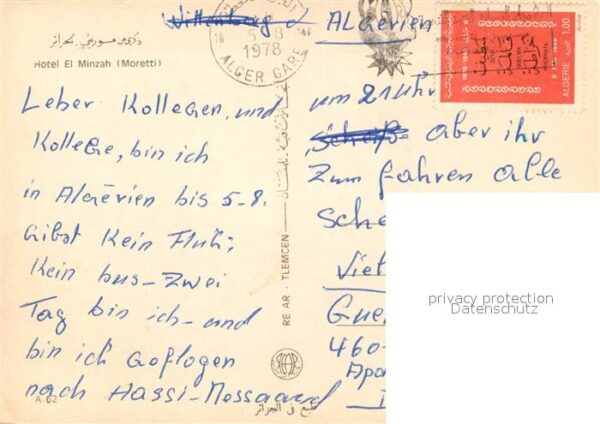 Wittenberg d Algerien
ذكرى من موريتي بالجزائر
Hotel El Minzah (Moretti)
16
5-8
1978
ALGER GARE
ALGERIE 1,00
Leber Kollegen, und
Kollege, bin ich
in Algerien bis 5-8.
Gibst Kein Fluh;
Kein bus-Zwei
Tag bin ich-und
bin ich Goflogen
nach Hassi-Messaoud
RE AR · TLEMCEN
A-62
طبع في الجزائر
um 21 Uhr
Scheiße aber ihr
Zum fahren alle
Sche
Viet
Gue
460-
Apa
privacy protection
Datenschutz